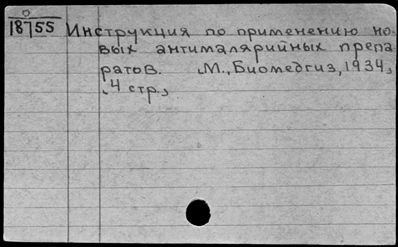 0
18755
Инструкция по применению но-
вых антималярийных препа
ратов. М., Биомедгиз, 1934,
4 стр.,